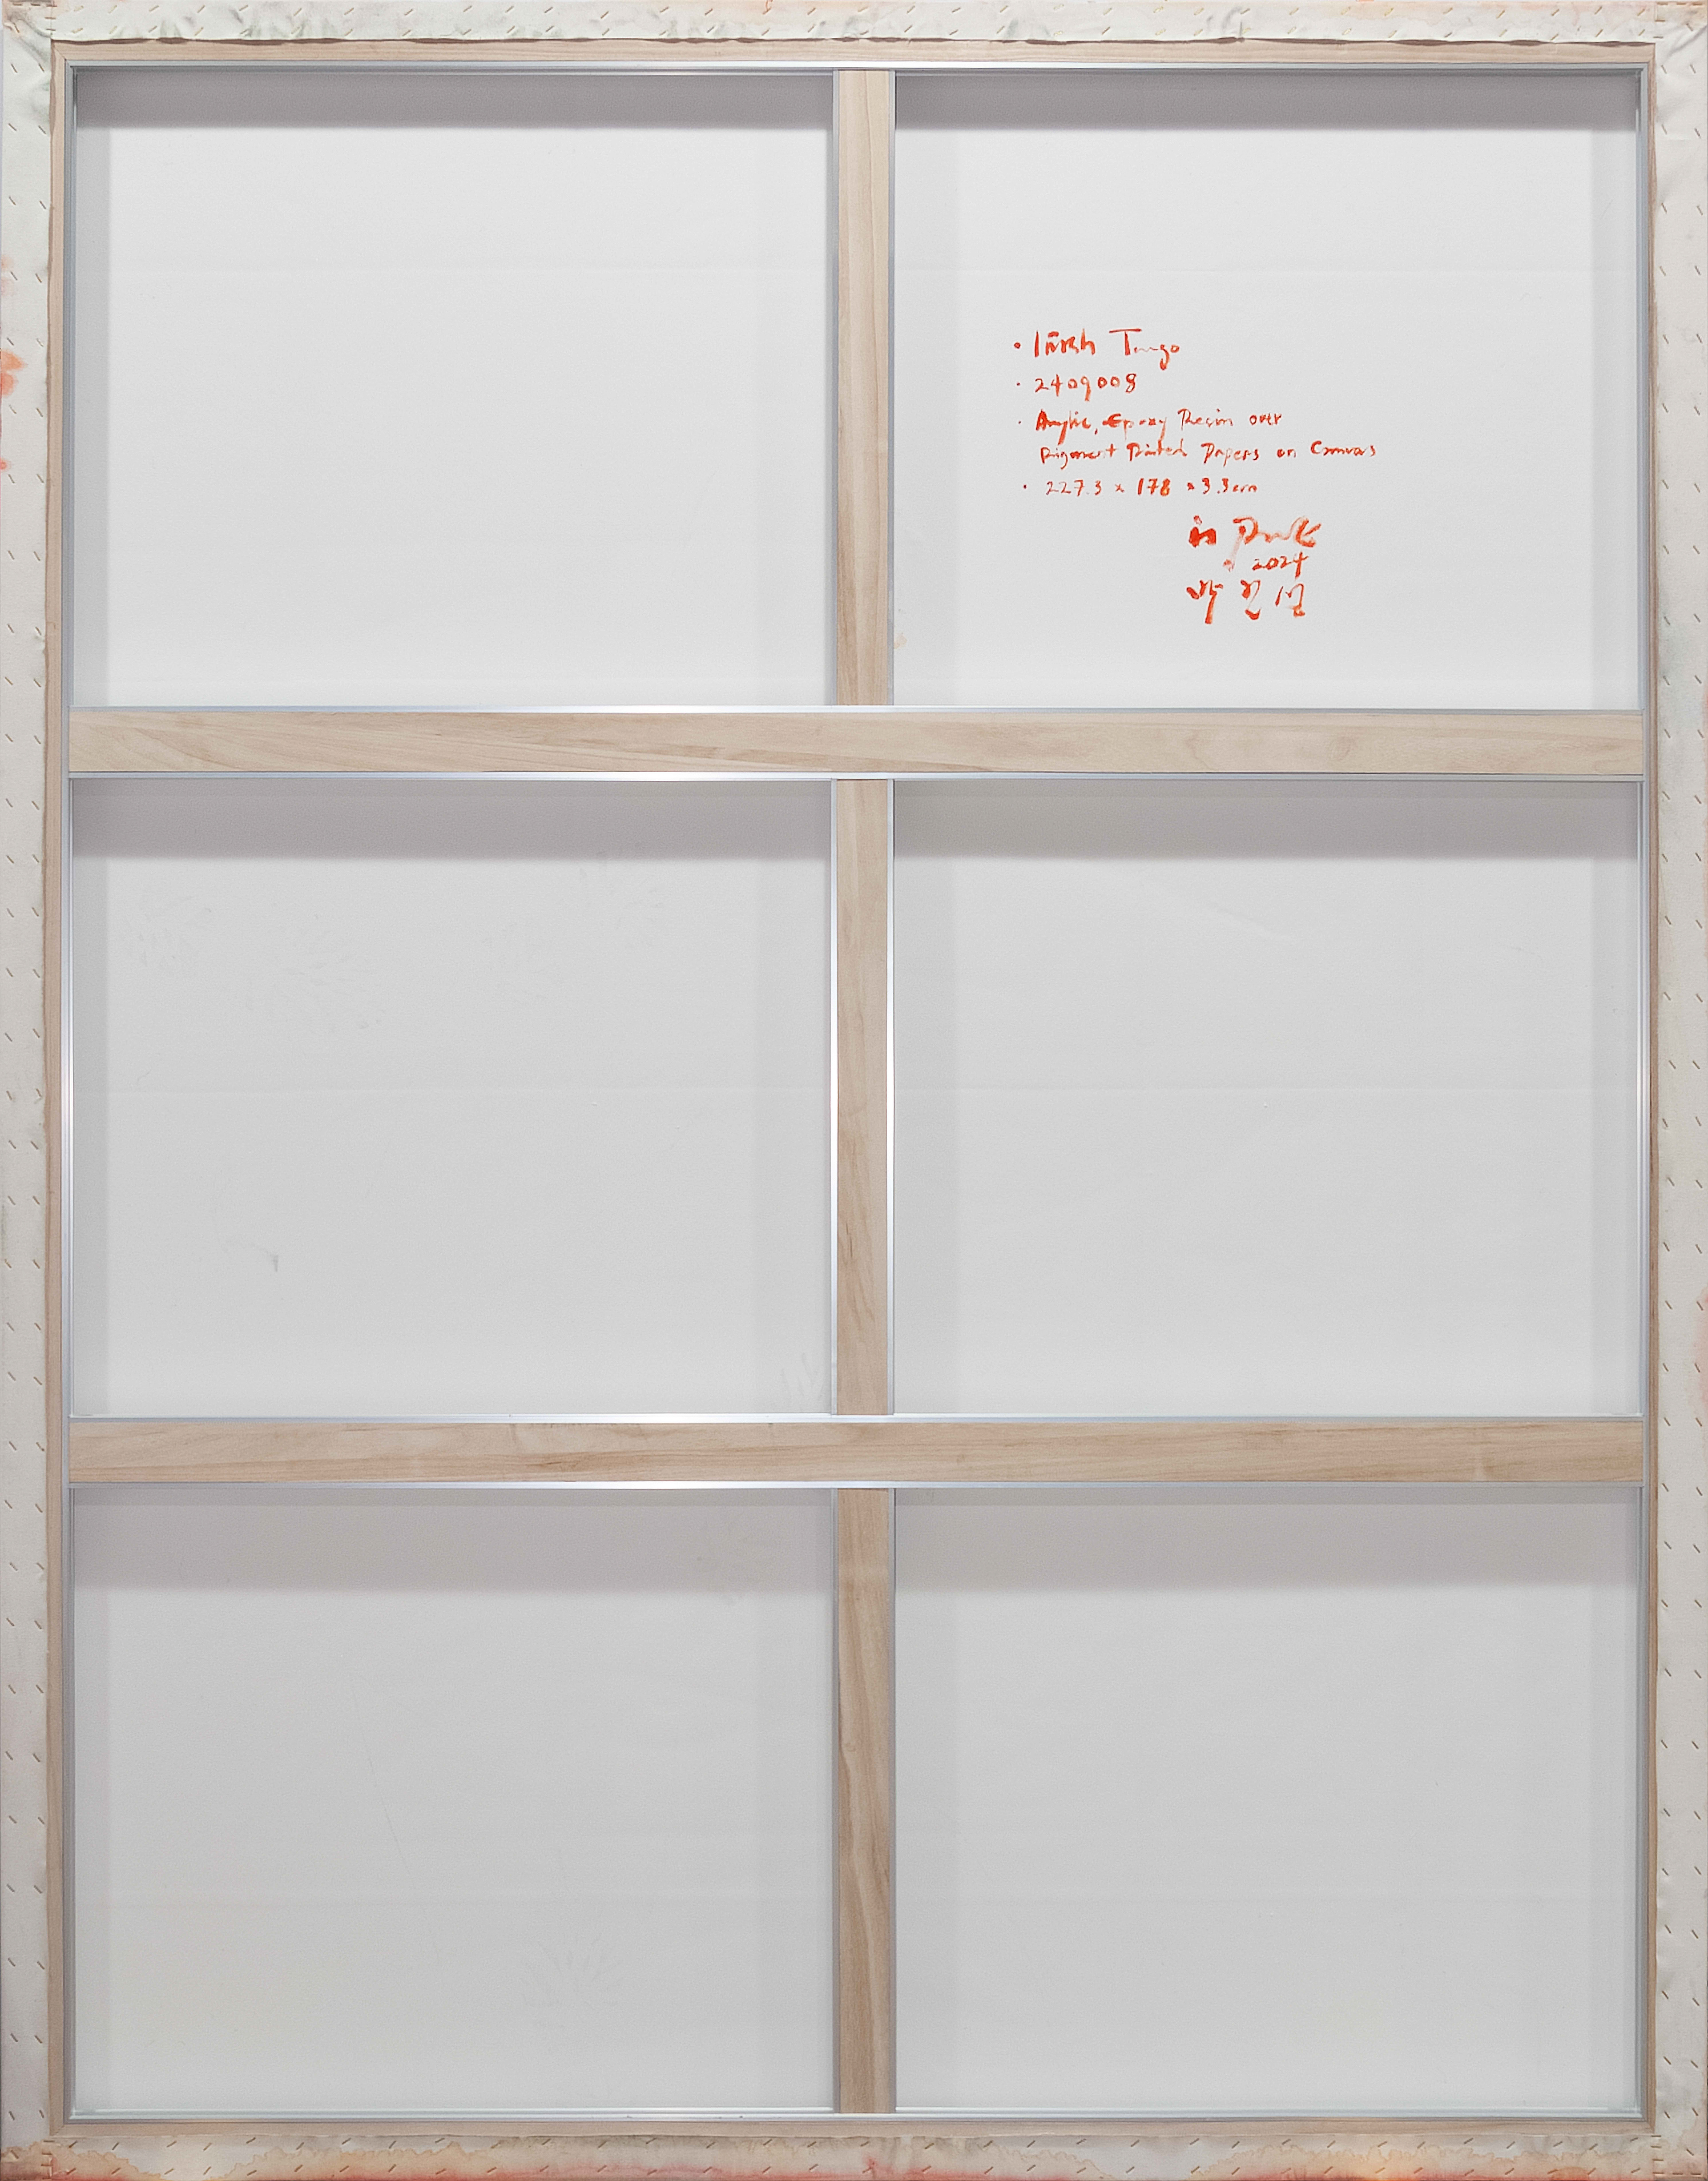 · Irish Tango
· 2409008
· Acrylic, Epoxy Resin over
Pigment Printed Papers on Canvas
· 227.3 x 178 x 3.3cm
Park
2024
박